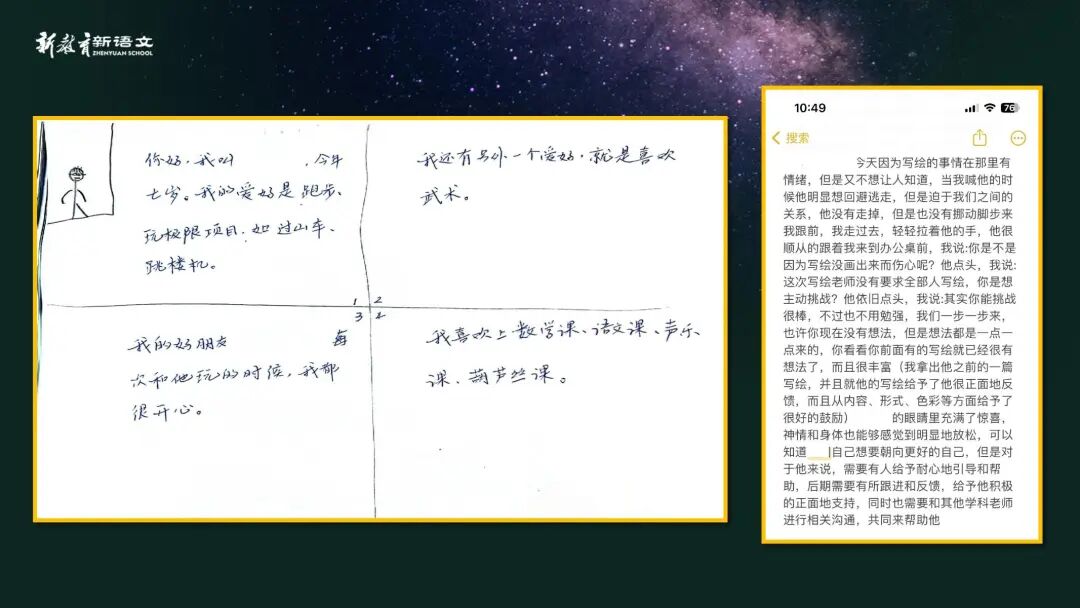 新教育新语文
ZHENYUAN SCHOOL
你好，我叫 ，今年
七岁。我的爱好是跑步、
玩极限项目，如过山车、
跳楼机。
我还有另外一个爱好，就是喜欢
武术。
1 2
3 4
我的好朋友 每
次和他玩的时候，我都
很开心。
我喜欢上数学课、语文课、声乐
课、葫芦丝课。
10:49
76
搜索
今天因为写绘的事情在那里有
情绪，但是又不想让人知道，当我喊他的时
候他明显想回避逃走，但是迫于我们之间的
关系，他没有走掉，但是也没有挪动脚步来
我跟前，我走过去，轻轻拉着他的手，他很
顺从的跟着我来到办公桌前，我说:你是不是
因为写绘没画出来而伤心呢？他点头，我说:
这次写绘老师没有要求全部人写绘，你是想
主动挑战？他依旧点头，我说:其实你能挑战
很棒，不过也不用勉强，我们一步一步来，
也许你现在没有想法，但是想法都是一点一
点来的，你看看你前面有的写绘就已经很有
想法了，而且很丰富（我拿出他之前的一篇
写绘，并且就他的写绘给予了他很正面地反
馈，而且从内容、形式、色彩等方面给予了
很好的鼓励） 的眼睛里充满了惊喜，
神情和身体也能够感觉到明显地放松，可以
知道 自己想要朝向更好的自己，但是对
于他来说，需要有人给予耐心地引导和帮
助，后期需要有所跟进和反馈，给予他积极
的正面地支持，同时也需要和其他学科老师
进行相关沟通，共同来帮助他